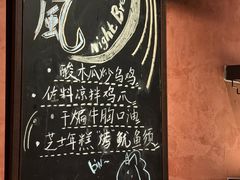 風
Night Br
· 酸木瓜炒乌鸡
· 佐料凉拌鸡爪
· 干煸牛胸口油
· 芝士年糕烤鱿鱼须